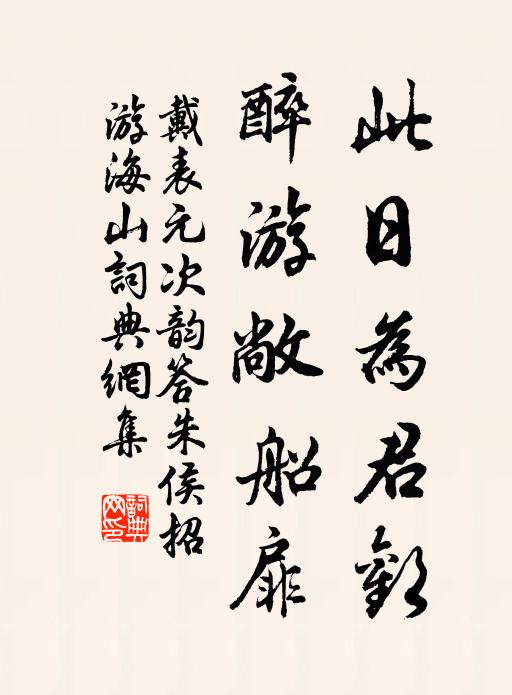 此日為君歡
醉游敞船扉
戴表元次韵答朱侯招
游海山詞典網集
詞典
网印